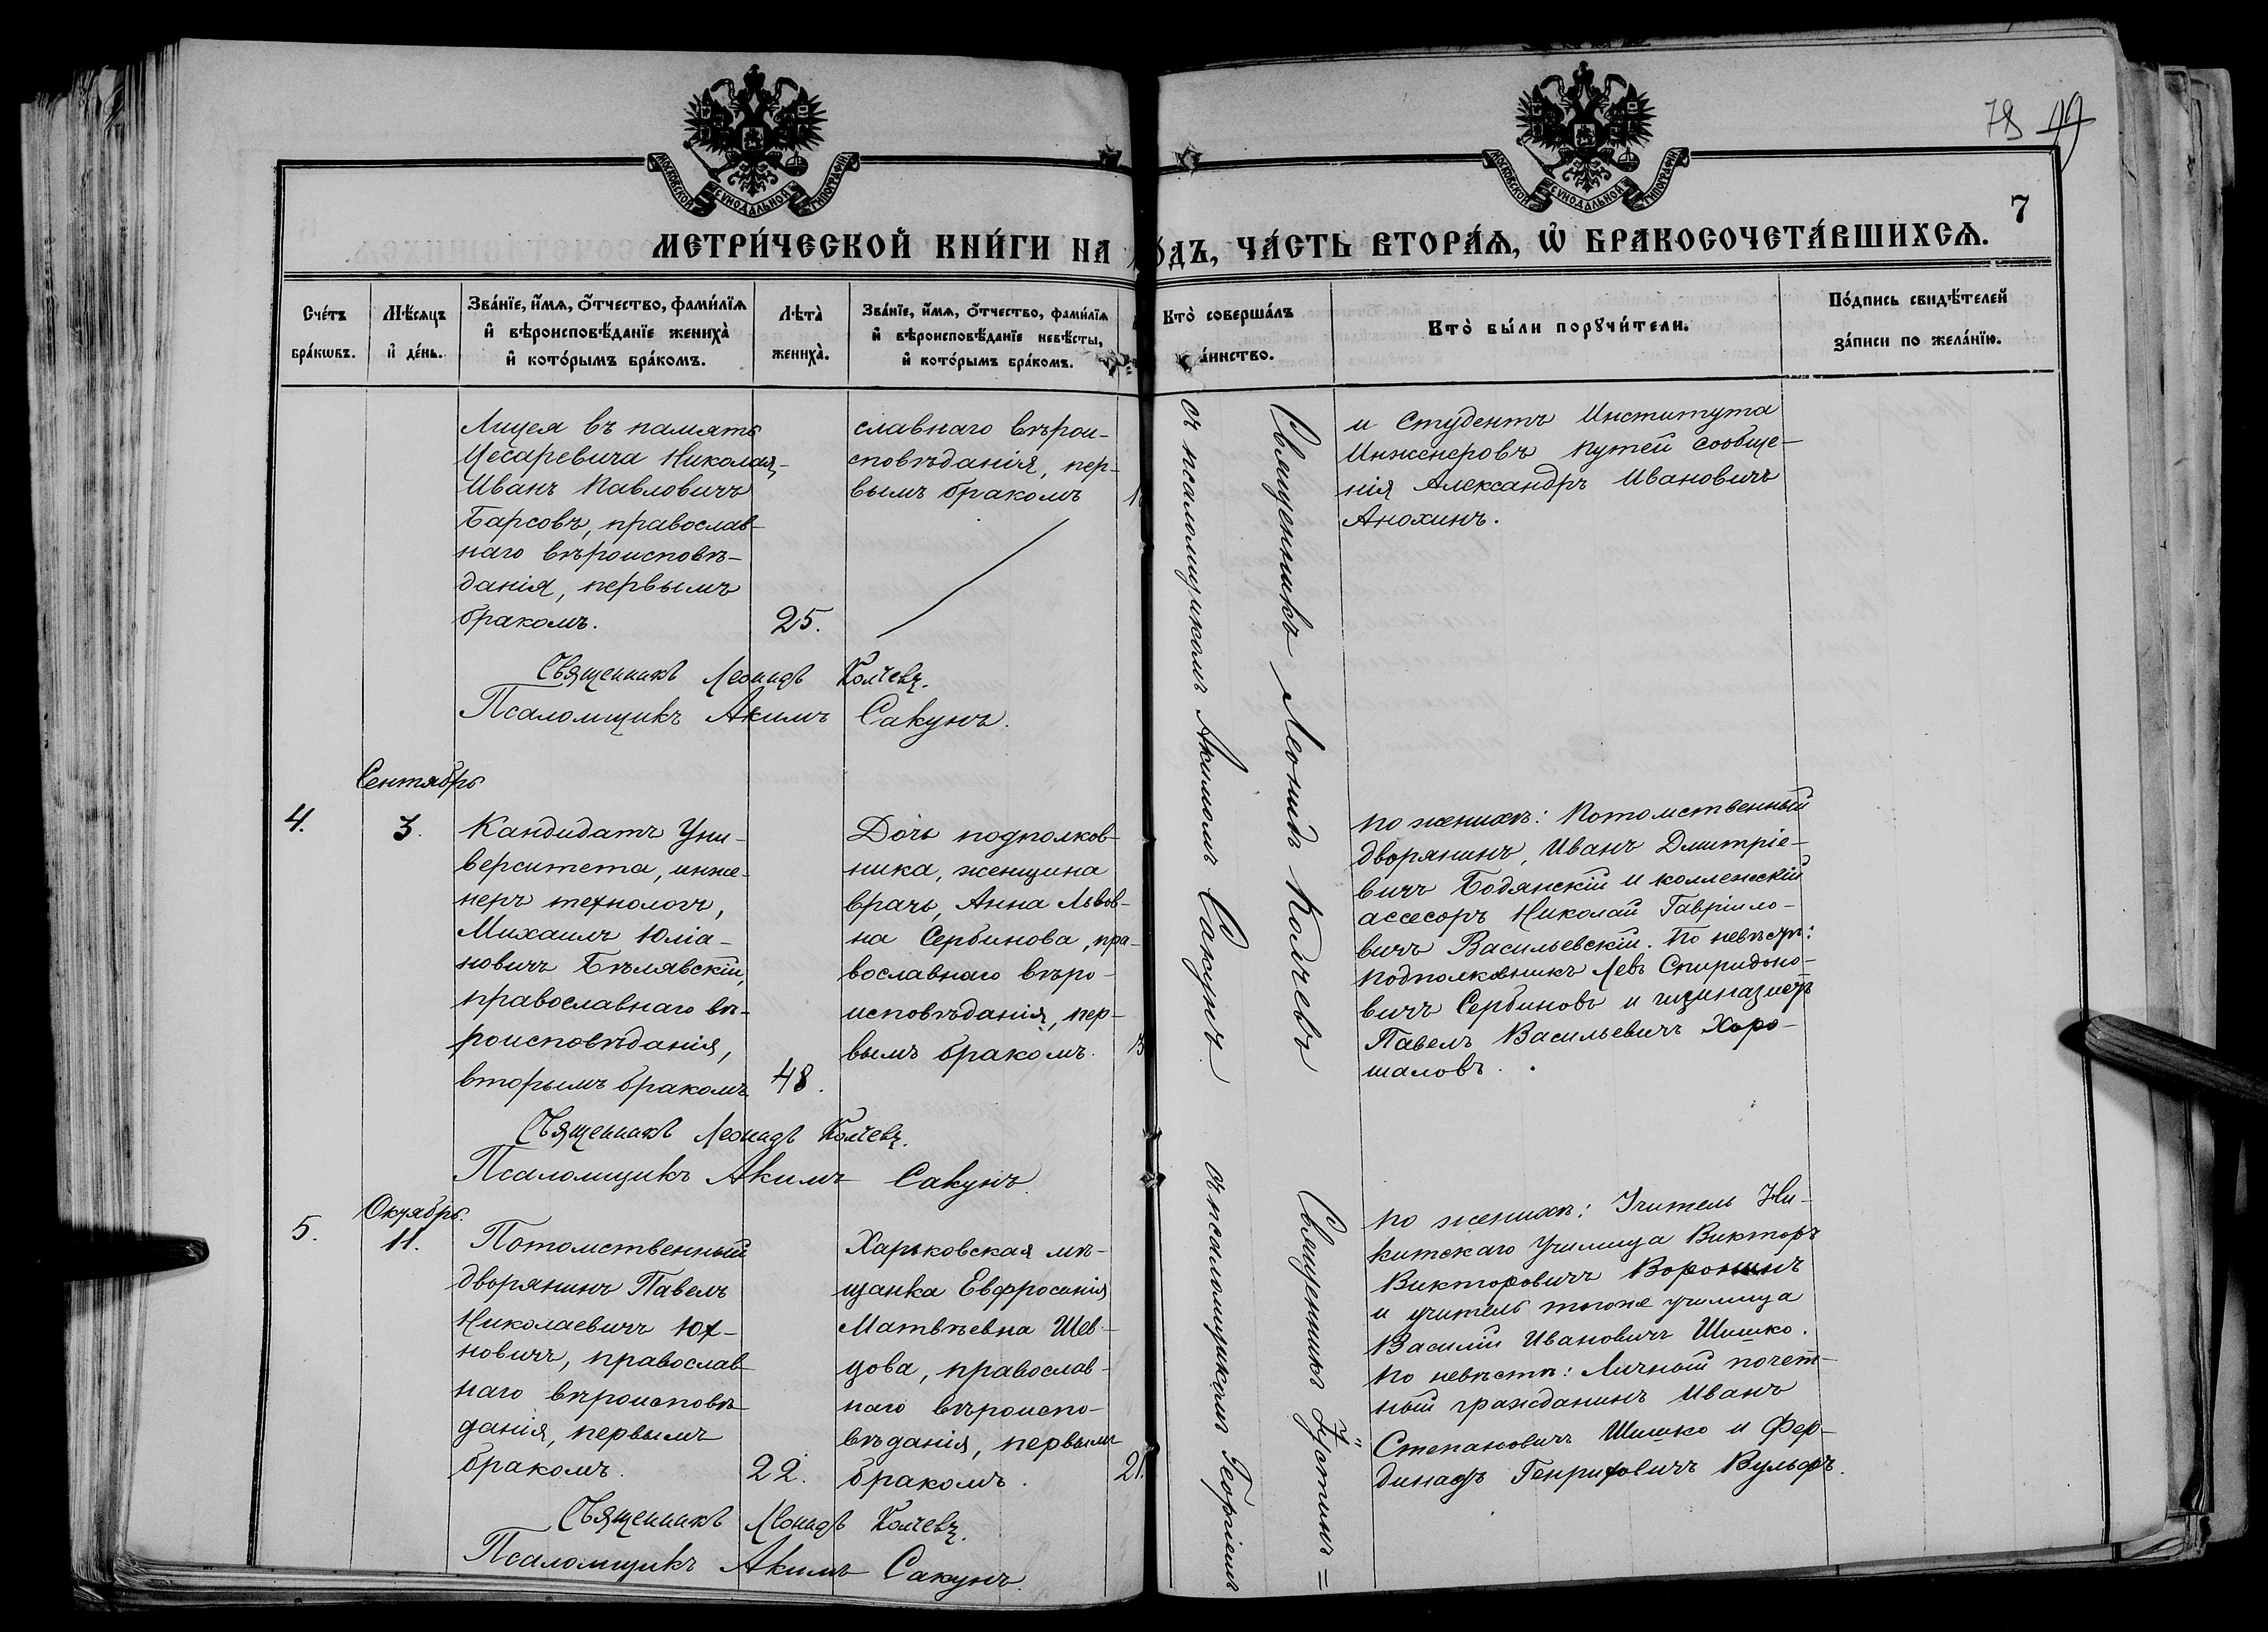 78
7
МОСКОВСКОЙ СѴНОДАЛЬНОЙ ТИПОГРАФІИ
МОСКОВСКОЙ СѴНОДАЛЬНОЙ ТИПОГРАФІИ
МЕТРИ́ЧЕСКОЙ КНИ́ГИ НА
О́ДЪ, ЧА́СТЬ ВТОРА́Ѧ, Ѽ БРАКОСОЧЕТА́ВШИХСѦ.
Сче́тъ
бра́кѡвъ.
Мѣ́сяцъ
и҆ де́нь.
Зва́нїе, и҆́мѧ, ѻ҆́тчество, фами́лїѧ
и҆ вѣроисповѣ́данїе жениха̀
и҆ кото́рымъ бра́комъ.
Лѣта̀
жениха̀.
Зва́нїе, и҆́мѧ, ѻ҆́тчество, фами́лїѧ
и҆ вѣроисповѣ́данїе невѣ́сты,
и҆ кото́рымъ бра́комъ.
Кто̀ соверша́лъ
а́инство.
Кто̀ бы́ли порꙋчи́тели.
По́дпись свидѣ́телей
за́писи по жела́нїю.
Лицея въ память
Цесаревича Николая,
Иванъ Павловичъ
Барсовъ, православ-
наго вѣроисповѣ-
данія, первымъ
бракомъ.
25.
славнаго вѣрои-
сповѣданія, пер-
вымъ бракомъ
Священникъ Леонидъ Колчевъ.
Псаломщикъ Акимъ Сакунъ.
Священникъ Леонидъ Колчевъ
съ псаломщикомъ Акимомъ Сакунъ.
и Студентъ Института
Инженеровъ путей сообще-
нія Александръ Ивановичъ
Анохинъ.
Сентябрь
4.
3.
Кандидатъ Уни-
верситета, инже-
неръ технологъ,
Михаилъ Юліа-
новичъ Бѣлявскій,
православнаго вѣ-
роисповѣданія,
вторымъ бракомъ
48.
Дочь подполков-
ника, женщина
врачъ, Анна Львов-
на Сербинова, пра-
вославнаго вѣро-
исповѣданія, пер-
вымъ бракомъ.
по женихѣ: Потомственный
дворянинъ, Иванъ Дмитріе-
вичъ Бодянскій и коллежскій
ассесоръ Николай Гавріило-
вичъ Васильевскій. По невѣстѣ:
подполковникъ Левъ Спиридоно-
вичъ Сербиновъ и гимназистъ
Павелъ Васильевичъ Хоро-
шаловъ.
Священникъ Леонидъ Колчевъ.
Псаломщикъ Акимъ Сакунъ.
Октябрь.
5.
11.
Потомственный
дворянинъ Павелъ
Николаевичъ Юх-
новичъ, православ-
наго вѣроисповѣ-
данія, первымъ
бракомъ.
22.
Харьковская мѣ-
щанка Евфросинія
Матвѣевна Шев-
цова, православ-
наго вѣроиспо-
вѣданія, первымъ
бракомъ.
21.
Священникъ Іустинъ =
съ псаломщикомъ Георгіемъ
по женихѣ: Учитель Ни-
китскаго Училища Викторъ
Викторовичъ Воронинъ
и учитель тогоже училища
Василій Ивановичъ Шишко.
по невѣстѣ: Личный почет-
ный гражданинъ Иванъ
Степановичъ Шишко и Фер-
динадъ Генриховичъ Вульфъ.
Священникъ Леонидъ Колчевъ.
Псаломщикъ Акимъ Сакунъ.